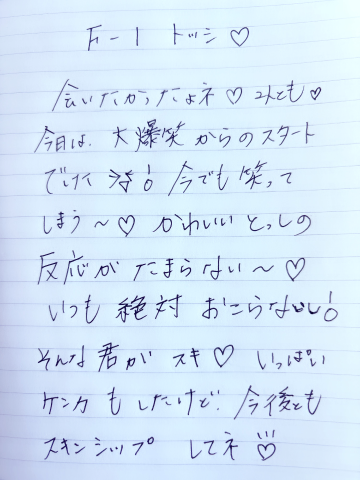 F-1 トッシ♡
会いたかったよネ♡ 2人とも♡
今日は、大爆笑からのスタート
でけけ 今でも笑って
しまう〜♡ かわいいとっしの
反応がたまらない〜♡
いつも絶対おこらないし!
そんな君がスキ♡ いっぱい
ケンカもしたけど、今後とも
スキンシップ してネ♡